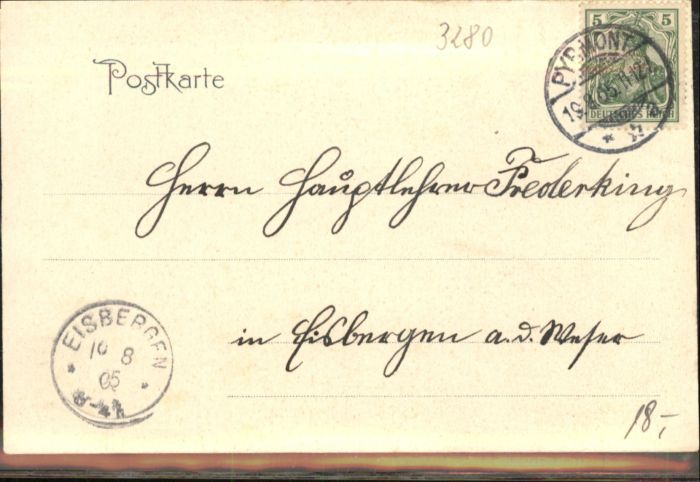 3280
Postkarte
5 5
DEUTSCHES REICH
PYRMONT
19.8.05.11-12
Herrn Hauptlehrer Frederking
in Eisbergen a. d. Weser
EISBERGEN
19 8
05
18,-